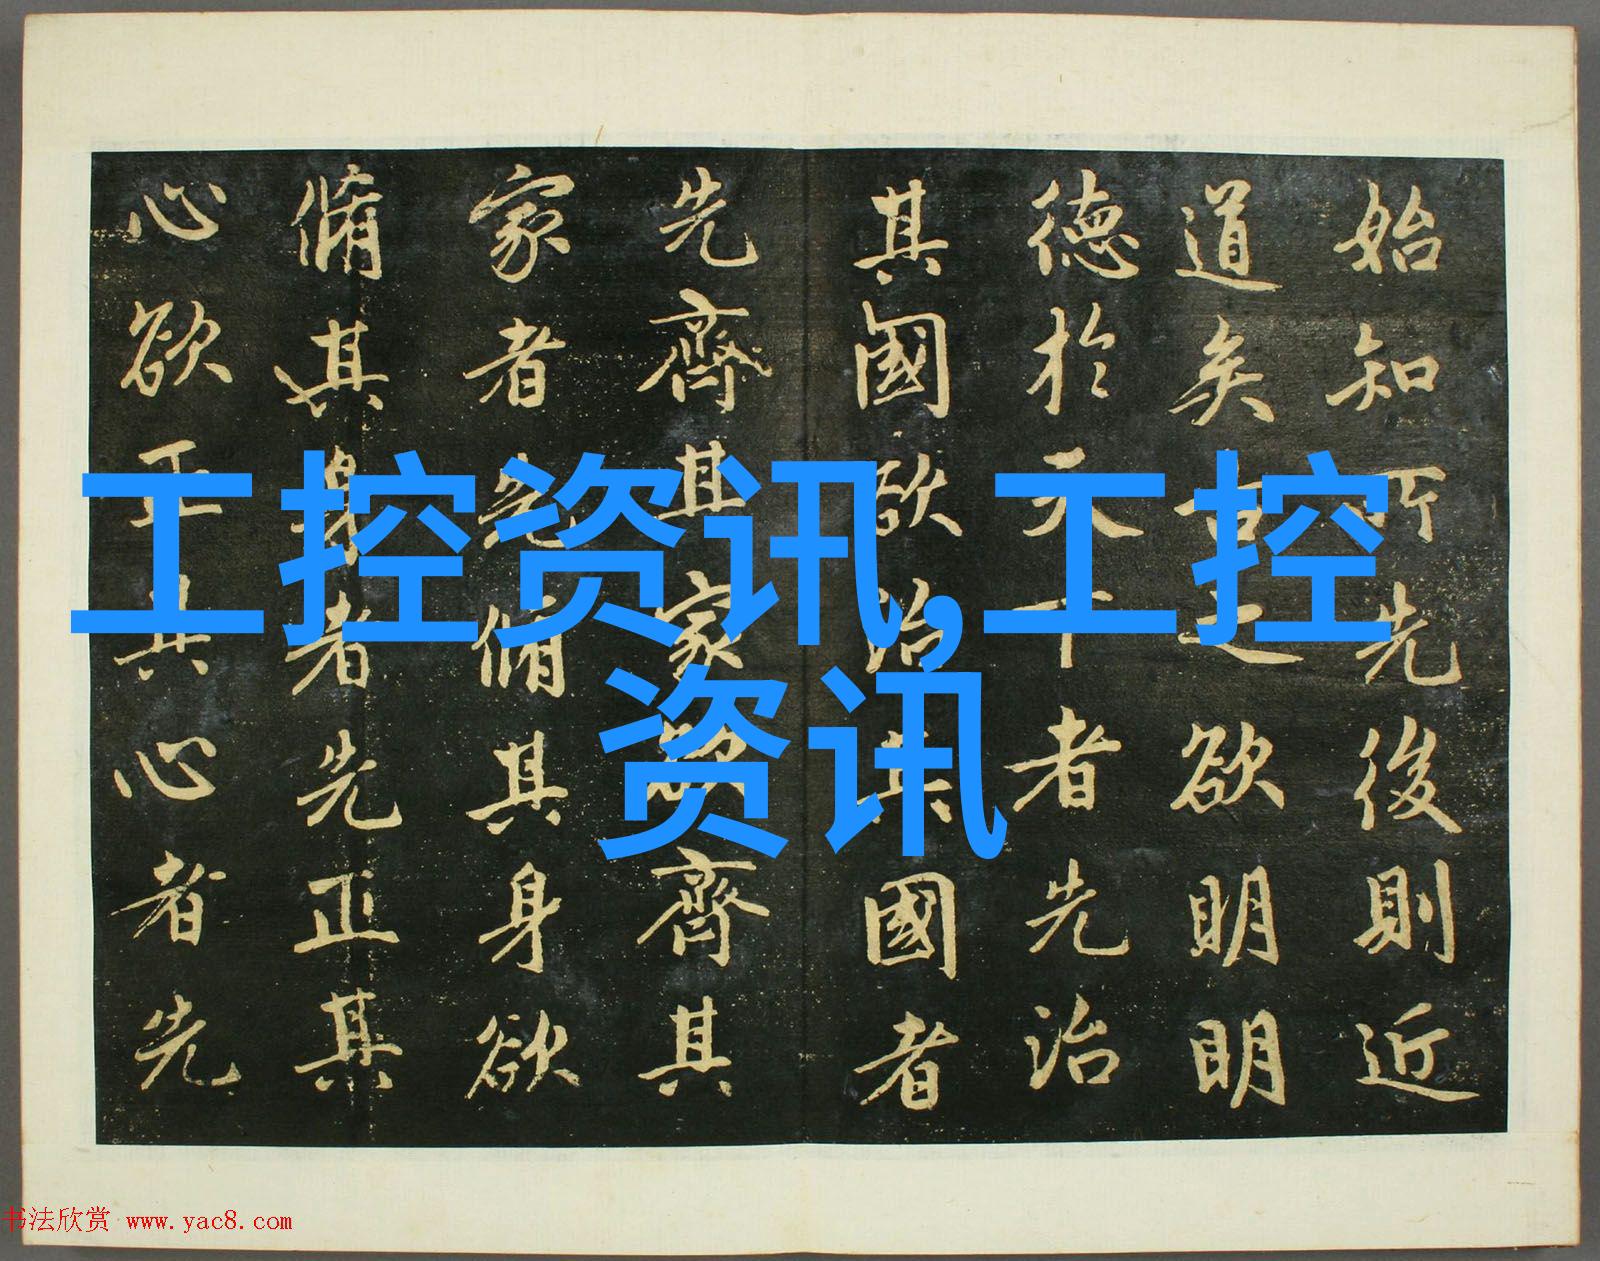 始知所先後則近
道矣古之欲明明
德於天下者先治
其國欲治其國者
先齊其家欲齊其
家者先脩其身欲
脩其身者先正其
心欲正其心者先
工控资讯,工控
资讯
书法欣赏 www.yac8.com